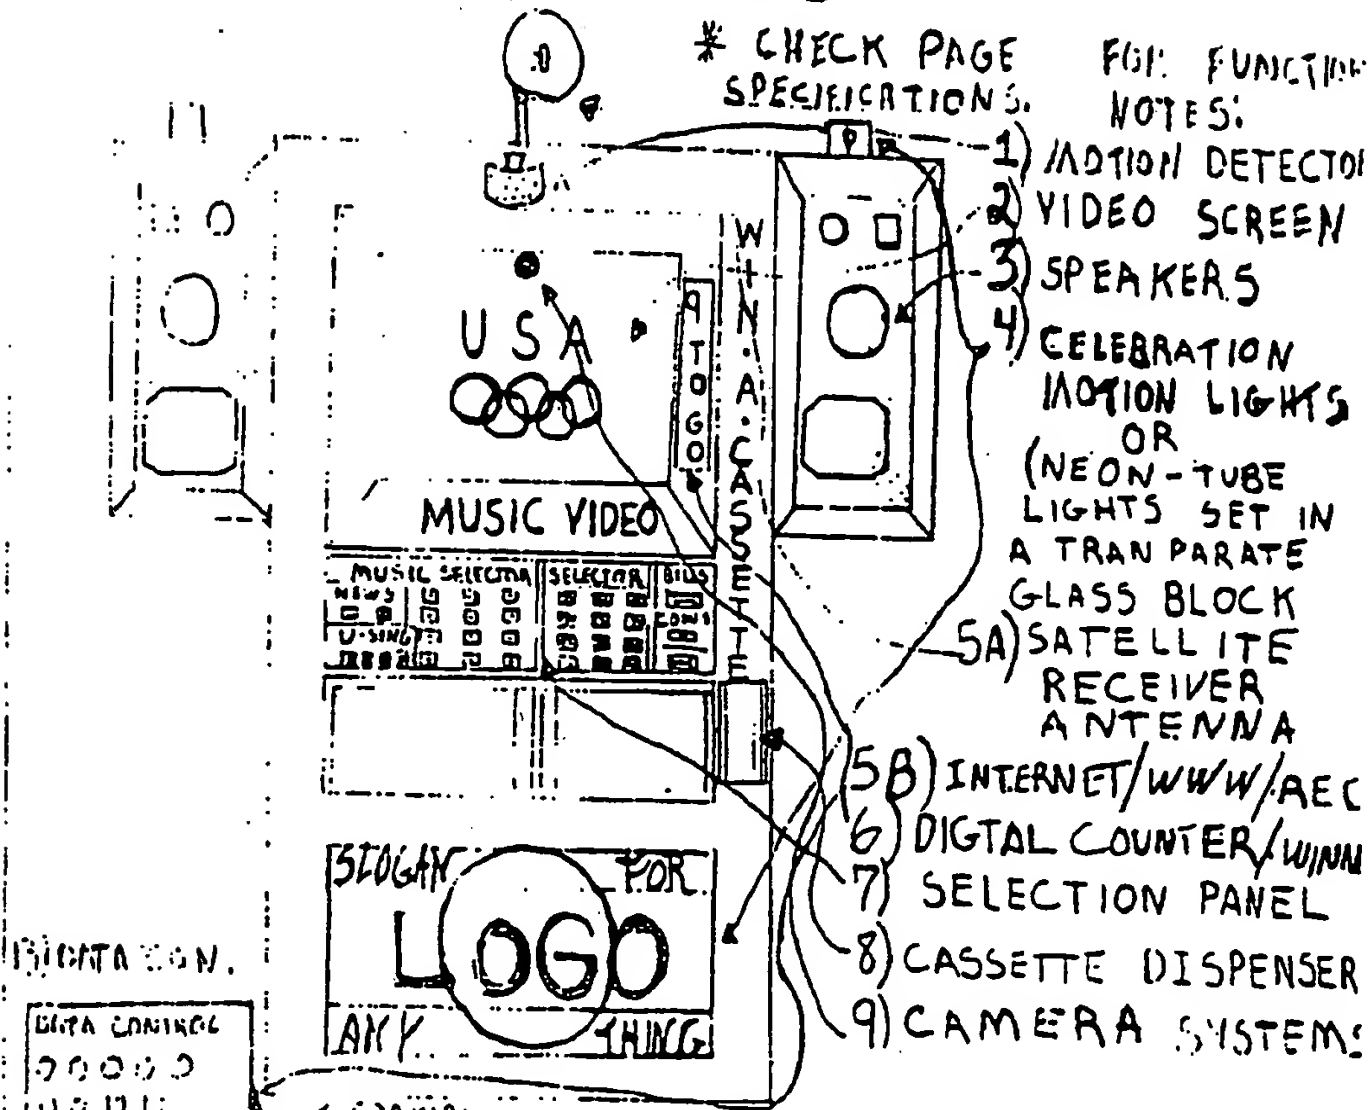 * CHECK PAGE FOR FUNCTION
SPECIFICATIONS. NOTES:
1) MOTION DETECTO
2) VIDEO SCREEN
3) SPEAKERS
4) CELEBRATION
MOTION LIGHTS
OR
(NEON-TUBE
LIGHTS SET IN
A TRANPARATE
GLASS BLOCK
5A) SATELLITE
RECEIVER
ANTENNA
5B) INTERNET/WWW/REC
6) DIGTAL COUNTER/WINN
7) SELECTION PANEL
8) CASSETTE DISPENSER
9) CAMERA SYSTEMS
WIN·A·CASSETTE
USA
9 TO GO
MUSIC VIDEO
MUSIC SELECTOR SELECTOR BILLS
NEWS
COINS
U-SING
SLOGAN FOR
LOGO
ANY THING
DATA CONTROL